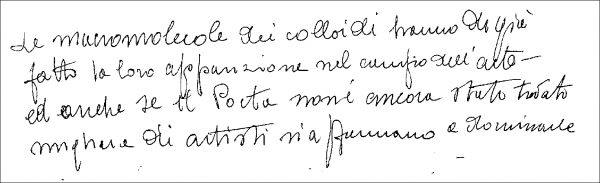 Le macromolecole dei colloidi hanno di già
fatto la loro apparizione nel campo dell'arte –
ed anche se il Poeta non è ancora stato trovato
migliaia di artisti si a dominarle